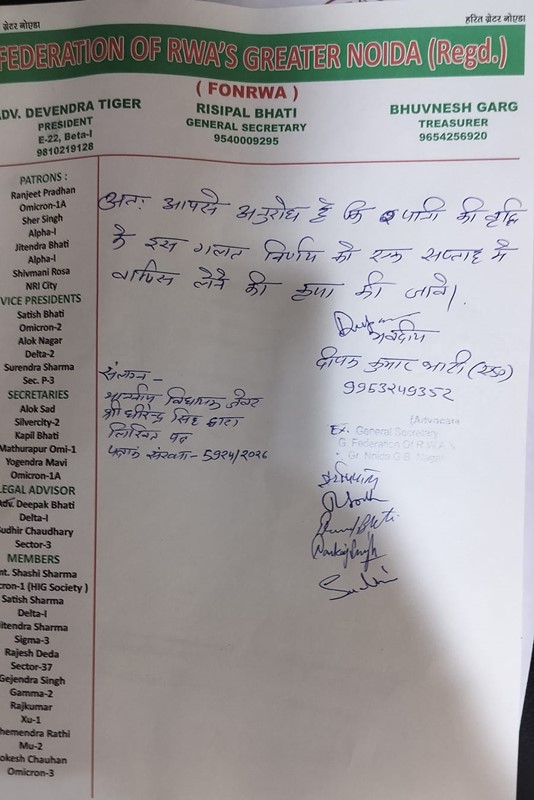 ग्रेटर नोएडा
हरित ग्रेटर नोएडा
FEDERATION OF RWA'S GREATER NOIDA (Regd.)
( FONRWA )
ADV. DEVENDRA TIGER
PRESIDENT
E-22, Beta-I
9810219128
RISIPAL BHATI
GENERAL SECRETARY
9540009295
BHUVNESH GARG
TREASURER
9654256920
PATRONS :
Ranjeet Pradhan
Omicron-1A
Sher Singh
Alpha-I
Jitendra Bhati
Alpha-I
Shivmani Rosa
NRI City
VICE PRESIDENTS
Satish Bhati
Omicron-2
Alok Nagar
Delta-2
Surendra Sharma
Sec. P-3
SECRETARIES
Alok Sad
Silvercity-2
Kapil Bhati
Mathurapur Omi-1
Yogendra Mavi
Omicron-1A
LEGAL ADVISOR
Adv. Deepak Bhati
Delta-I
Sudhir Chaudhary
Sector-3
MEMBERS
mt. Shashi Sharma
cron-1 (HIG Society )
Satish Sharma
Delta-I
itendra Sharma
Sigma-3
Rajesh Deda
Sector-37
Gejendra Singh
Gamma-2
Rajkumar
Xu-1
hemendra Rathi
Mu-2
okesh Chauhan
Omicron-3
अतः आपसे अनुरोध है कि पानी की वृद्धि
के इस गलत निर्णय को एक सप्ताह में
वापिस लेने की कृपा की जावे।
भवदीय
दीपक कुमार भाटी (एड०)
9953249352
(Advocate
Ex. General Secretary
G. Federation Of R.W.A.'s
Gr. Noida G.B. Nagar
संलग्न –
माननीय विधायक जेवर
श्री धीरेन्द्र सिंह द्वारा
लिखित पत्र
पत्रांक संख्या - 5924/2026